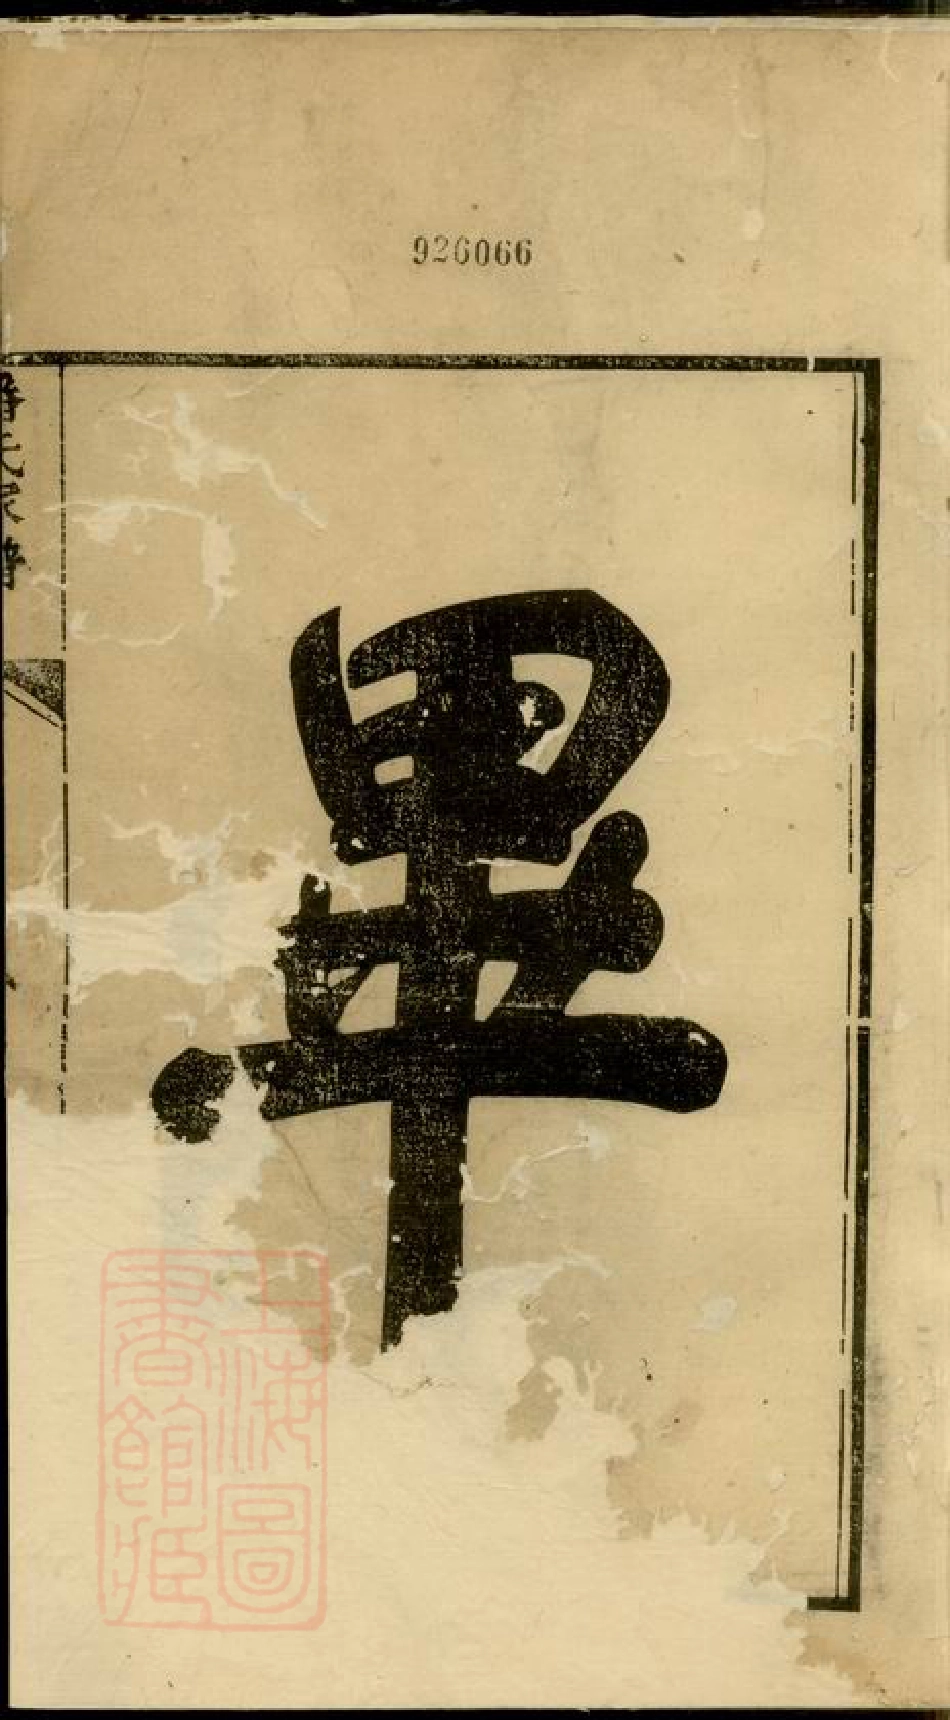 926066
畢
上海圖
書館藏